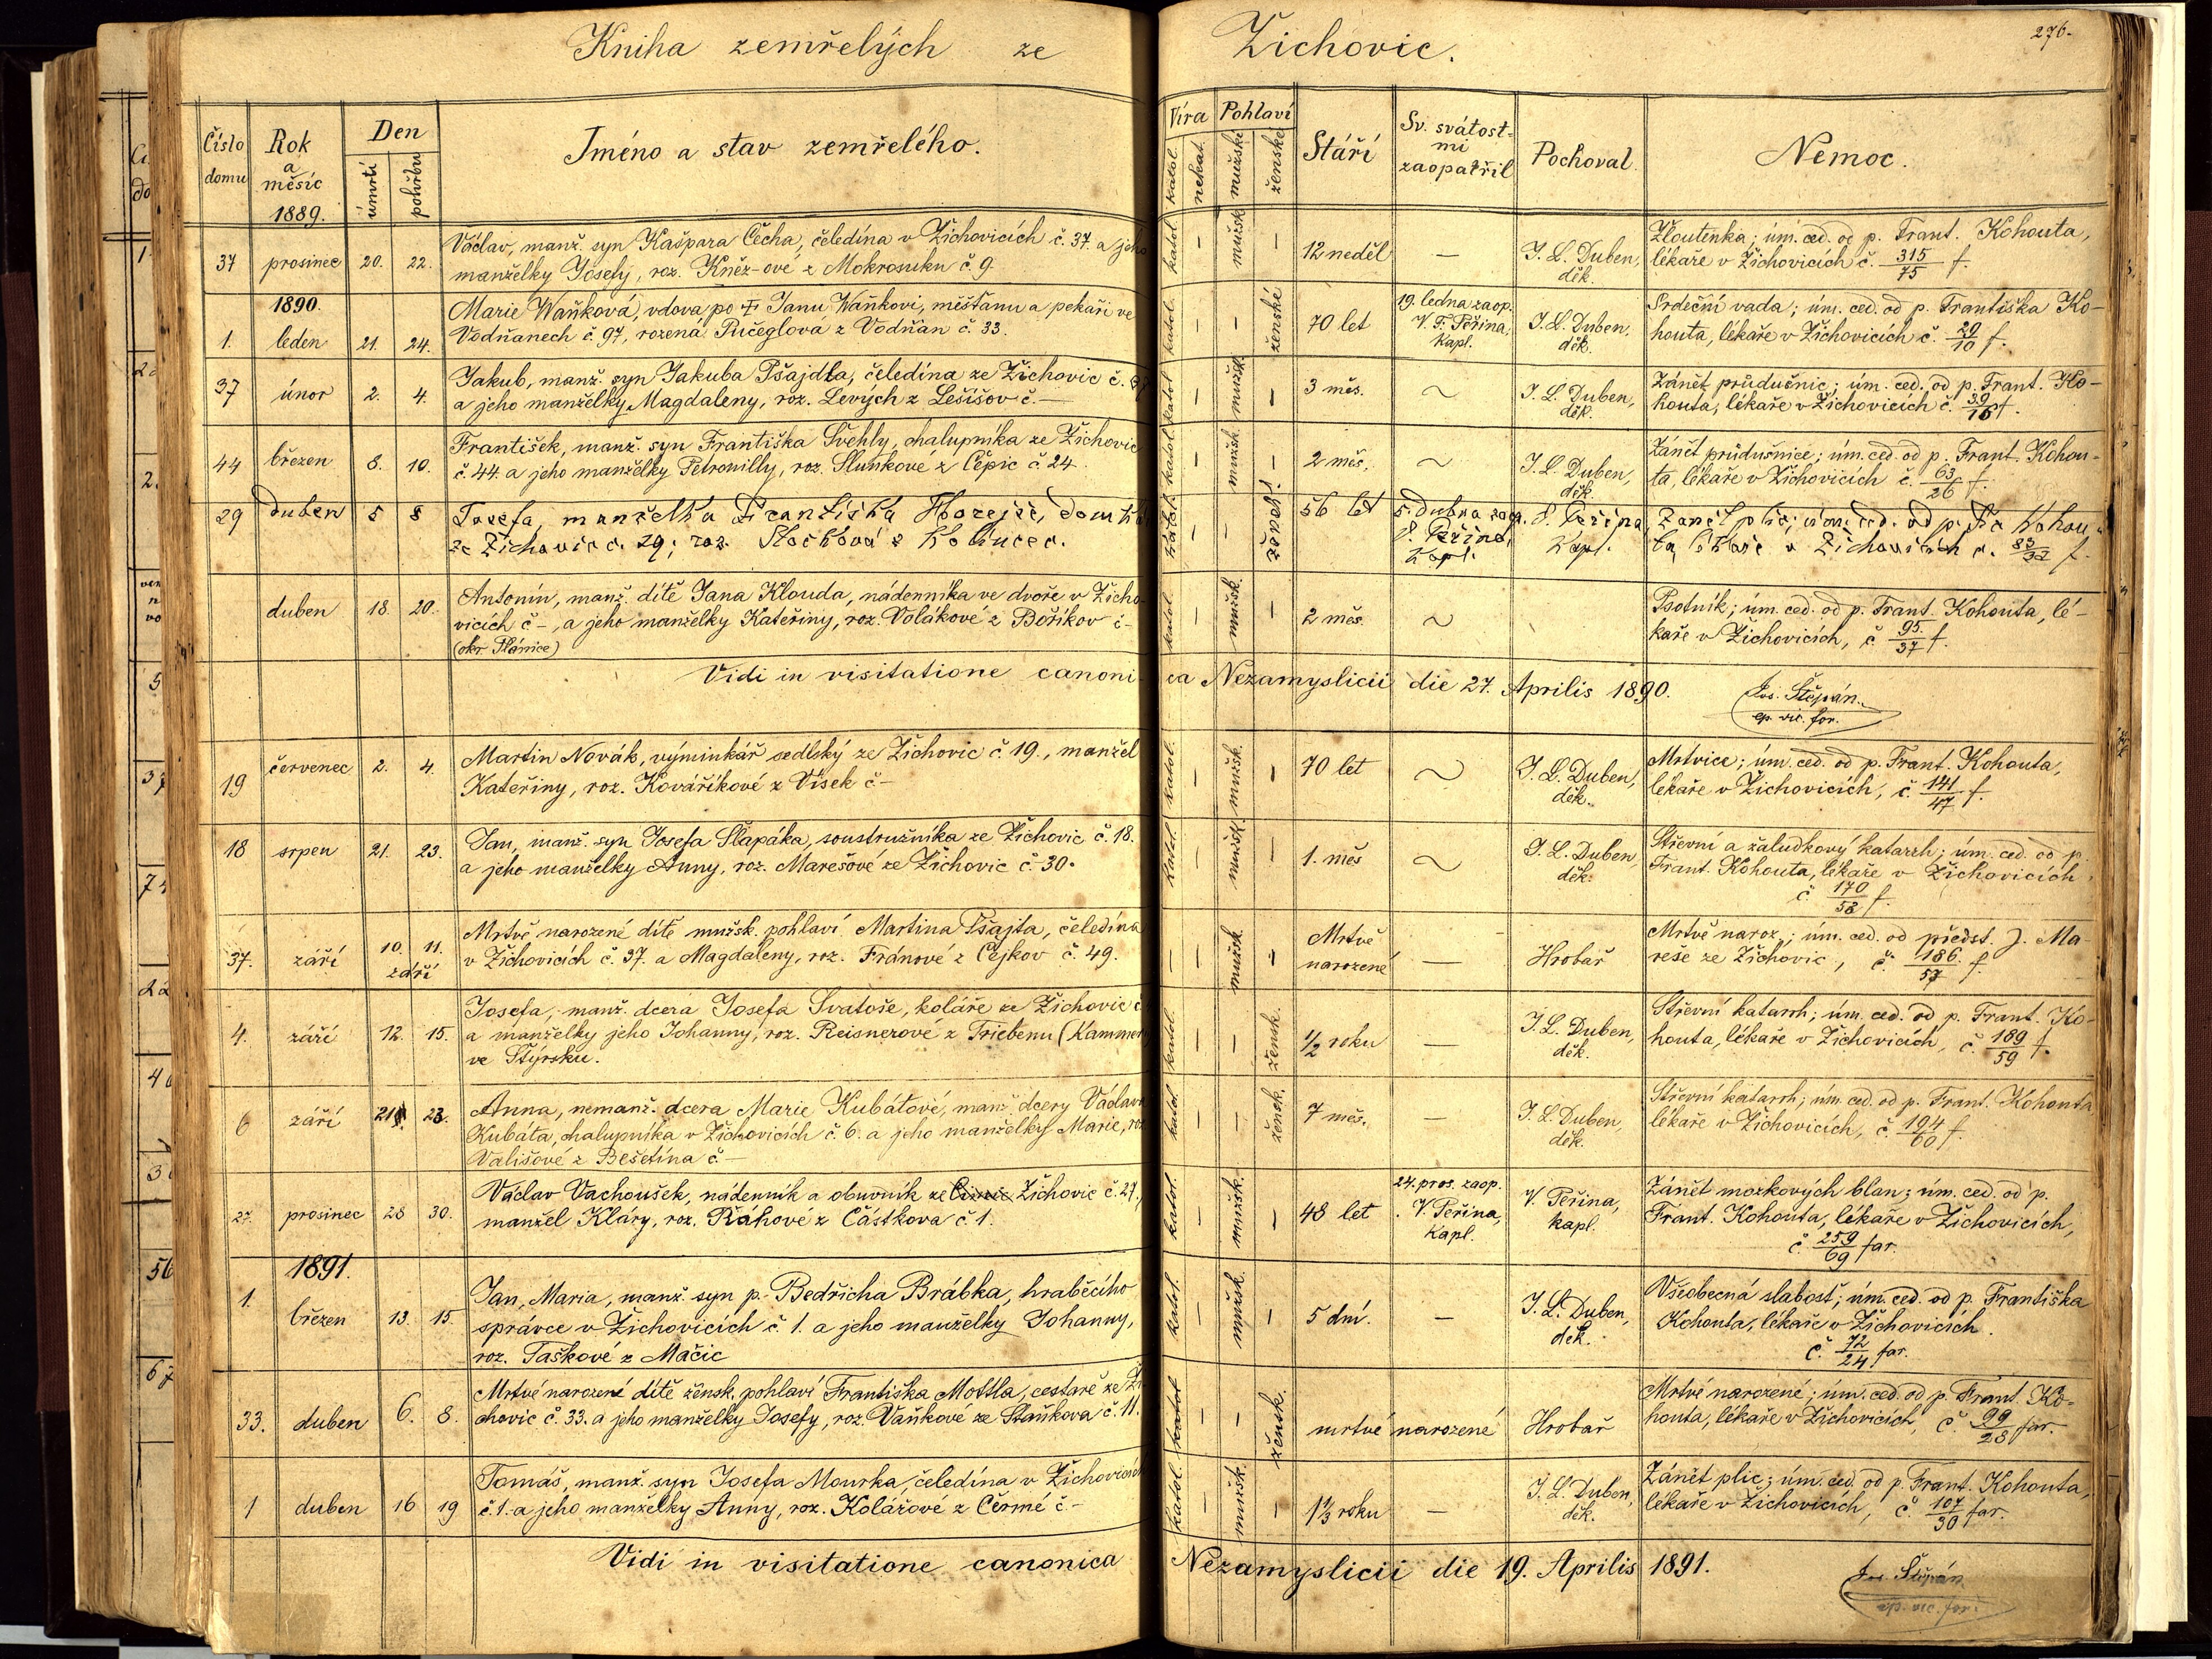 Kniha zemřelých ze Žichovic.
276.
Číslo domu
Rok a měsíc 1889.
Den
úmrtí
pohřbu
Jméno a stav zemřelého.
Víra
katol.
nekat.
Pohlaví
mužské
ženské
Stáří
Sv. svátost-
mi
zaopatřil
Pochoval.
Nemoc.
37 prosinec 20. 22.
Václav, manž. syn Kašpara Čecha, čeledína v Žichovicích č. 37. a jeho
manželky Josefy, roz. Kněz-ové z Mokrosuku č. 9.
katol. – mužsk. – 12 neděl — J. L. Duben, děk.
Žloutenka; úm. ced. od p. Frant. Kohouta,
lékaře v Žichovicích č. 315/75 f.
1890.
1. leden 21. 24.
Marie Waňková, vdova po † Janu Waňkovi, měšťanu a pekaři ve
Vodňanech č. 97, rozená Pučeglová z Vodňan č. 33.
katol. – – ženské 70 let
19. ledna zaop.
V. F. Peřina,
kapl.
J. L. Duben, děk.
Srdeční vada; úm. ced. od p. Františka Ko-
houta, lékaře v Žichovicích č. 20/10 f.
37 únor 2. 4.
Jakub, manž. syn Jakuba Pšajdla, čeledína ze Žichovic č. 37
a jeho manželky Magdaleny, roz. Levých z Lešišov č. —
katol. – mužsk. – 3 měs. ~ J. L. Duben, děk.
Zánět průdušnic; úm. ced. od p. Frant. Ko-
houta, lékaře v Žichovicích č. 39/16 f.
44 březen 8. 10.
František, manž. syn Františka Švehly, chalupníka ze Žichovic
č. 44. a jeho manželky Petronilly, roz. Sluňkové z Čepic č. 24.
katol. – mužsk. – 2 měs. ~ J. L. Duben, děk.
Zánět průdušnice; úm. ced. od p. Frant. Kohou-
ta, lékaře v Žichovicích č. 63/26 f.
29 duben 5 8
Josefa, manželka Františka Hořejše,
ze Žichovic č. 29; roz.
katol. – – žensk. 56 let
5. dubna zaop.
Peřina,
Kapl.
Peřina
Kapl.
Zánět plic; úm. ced. od p. Kohou-
ta lékaře v Žichovicích č. f.
duben 18. 20.
Antonín, manž. dítě Jana Klouda, nádenníka ve dvoře v Žicho-
vicích č –, a jeho manželky Kateřiny, roz. Volákové z Boříkov č –
(okr. Plánice)
katol. – mužsk. – 2 měs. ~
Psotník; úm. ced. od p. Frant. Kohouta, lé-
kaře v Žichovicích, č. 95./37 f.
Vidi in visitatione canonica Nezamyslicii die 27. Aprilis 1890.
Jos. Štěpán.
ep. vic. for.
19 červenec 2. 4.
Martin Novák, výminkář sedlský ze Žichovic č. 19., manžel
Kateřiny, roz. Kováříkové z Vísek č –
katol. – mužsk. – 70 let ~ J. L. Duben, děk.
Mrtvice; úm. ced. od p. Frant. Kohouta,
lékaře v Žichovicích, č. 141/47 f.
18 srpen 21. 23.
Jan, manž. syn Josefa Šlapáka, soustružníka ze Žichovic č. 18.
a jeho manželky Anny, roz. Marešové ze Žichovic č. 30.
katol. – mužsk. – 1. měs ~ J. L. Duben, děk.
Střevní a žaludkový katarrh; úm. ced. od p.
Frant. Kohouta, lékaře v Žichovicích,
č. 170/58 f.
37. září 10. 11. září
Mrtvě narozené dítě mužsk. pohlaví Martina Pšajta, čeledína
v Žichovicích č. 37. a Magdaleny, roz. Fránové z Cejkov č. 49.
– – mužsk. – Mrtvě narozené — Hrobař
Mrtvě naroz.; úm. ced. od předst. J. Ma-
reše ze Žichovic, č. 186./57 f.
4. září 12. 15.
Josefa, manž. dcera Josefa Svatoše, koláře ze Žichovic č
a manželky jeho Johanny, roz. Reisnerové z Triebenu (Kammern
ve Štýrsku.
katol. – – žensk. 1/2 roku — J. L. Duben, děk.
Střevní katarrh; úm. ced. od p. Frant. Ko-
houta, lékaře v Žichovicích, č. 189/59 f.
6 září 21. 23.
Anna, nemanž. dcera Marie Kubátové, manž. dcery Václava
Kubáta, chalupníka v Žichovicích č. 6. a jeho manželky Marie, roz
Vališové z Bešetína č. –
katol. – – žensk. 7 měs. — J. L. Duben, děk.
Střevní katarrh; úm. ced. od p. Frant. Kohouta
lékaře v Žichovicích, č. 194/60 f.
27. prosinec 28 30.
Václav Vachoušek, nádenník a obuvník ze Žichovic č. 27.,
manžel Kláry, roz. Ráhové z Částkova č. 1.
katol. – mužsk. – 48 let
24. pros. zaop.
V. Peřina,
kapl.
V. Peřina,
kapl.
Zánět mozkových blan; úm. ced. od p.
Frant. Kohouta, lékaře v Žichovicích,
č. 259/69 far.
1891.
1. březen 13. 15.
Jan, Maria, manž. syn p. Bedřicha Brábka, hraběcího
správce v Žichovicích č. 1. a jeho manželky Johanny,
roz. Taškové z Mačic
katol. – mužsk. – 5 dní. — J. L. Duben, děk.
Všeobecná slabost; úm. ced. od p. Františka
Kohouta, lékaře v Žichovicích.
č. 72/24 far.
33. duben 6. 8.
Mrtvě narozené dítě žensk. pohlaví Františka Mottla, cestaře ze Ži-
chovic č. 33. a jeho manželky Josefy, roz. Vaňkové ze Staňkova č. 11.
katol. – – žensk. mrtvě narozené Hrobař
Mrtvě narozené; úm. ced. od p. Frant. Ko-
houta, lékaře v Žichovicích, č. 99/28 far.
1 duben 16 19
Tomáš, manž. syn Josefa Mourka, čeledína v Žichovicích
č. 1. a jeho manželky Anny, roz. Kolářové z Čermé č –
katol. – mužsk. – 1 1/3 roku — J. L. Duben, děk.
Zánět plic; úm. ced. od p. Frant. Kohouta,
lékaře v Žichovicích, č. 107/30 far.
Vidi in visitatione canonica Nezamyslicii die 19. Aprilis 1891.
Jos. Štěpán
ep. vic. for.